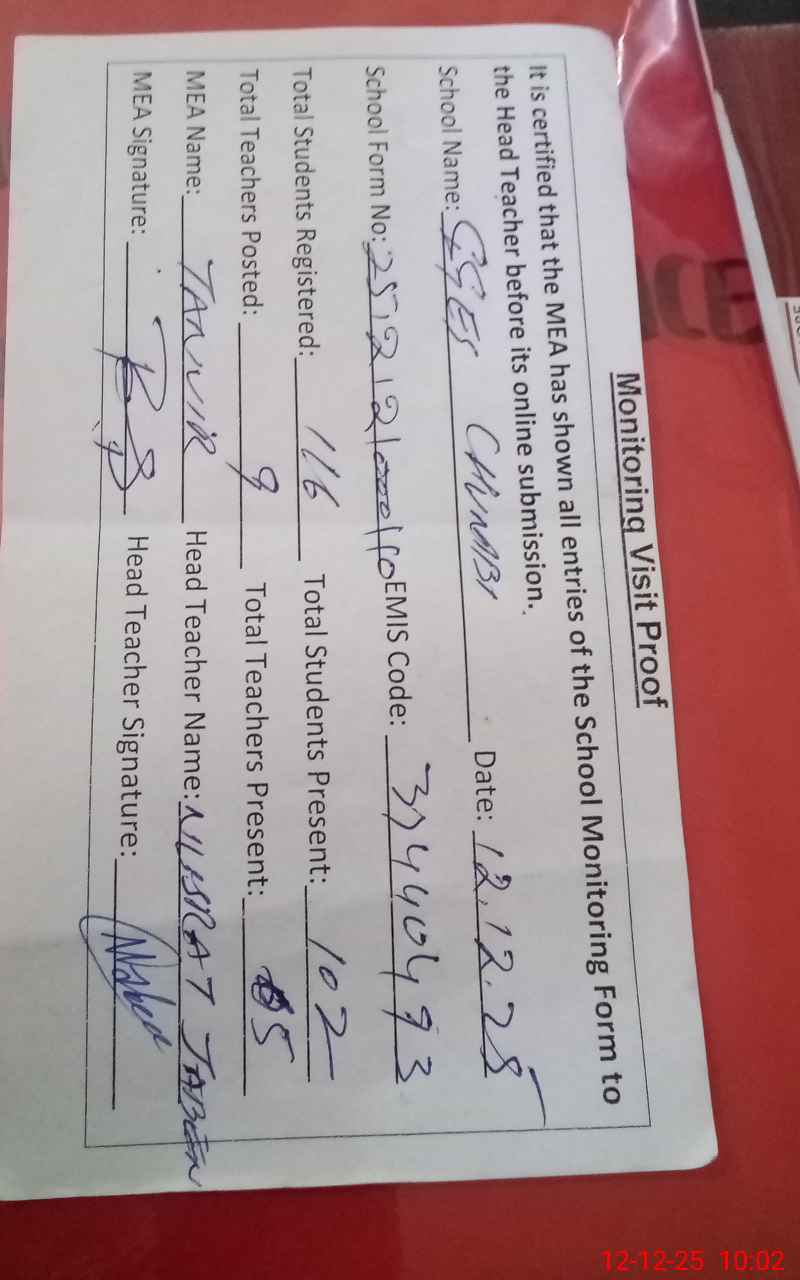 Monitoring Visit Proof
It is certified that the MEA has shown all entries of the School Monitoring Form to
the Head Teacher before its online submission.
School Name: GGES Date: 12.12.25
School Form No: EMIS Code: 37440493
Total Students Registered: 116 Total Students Present: 102
Total Teachers Posted: 9 Total Teachers Present: 5
MEA Name: TANVIR Head Teacher Name: NUSRAT JABEEN
MEA Signature: Head Teacher Signature:
12-12-25 10:02